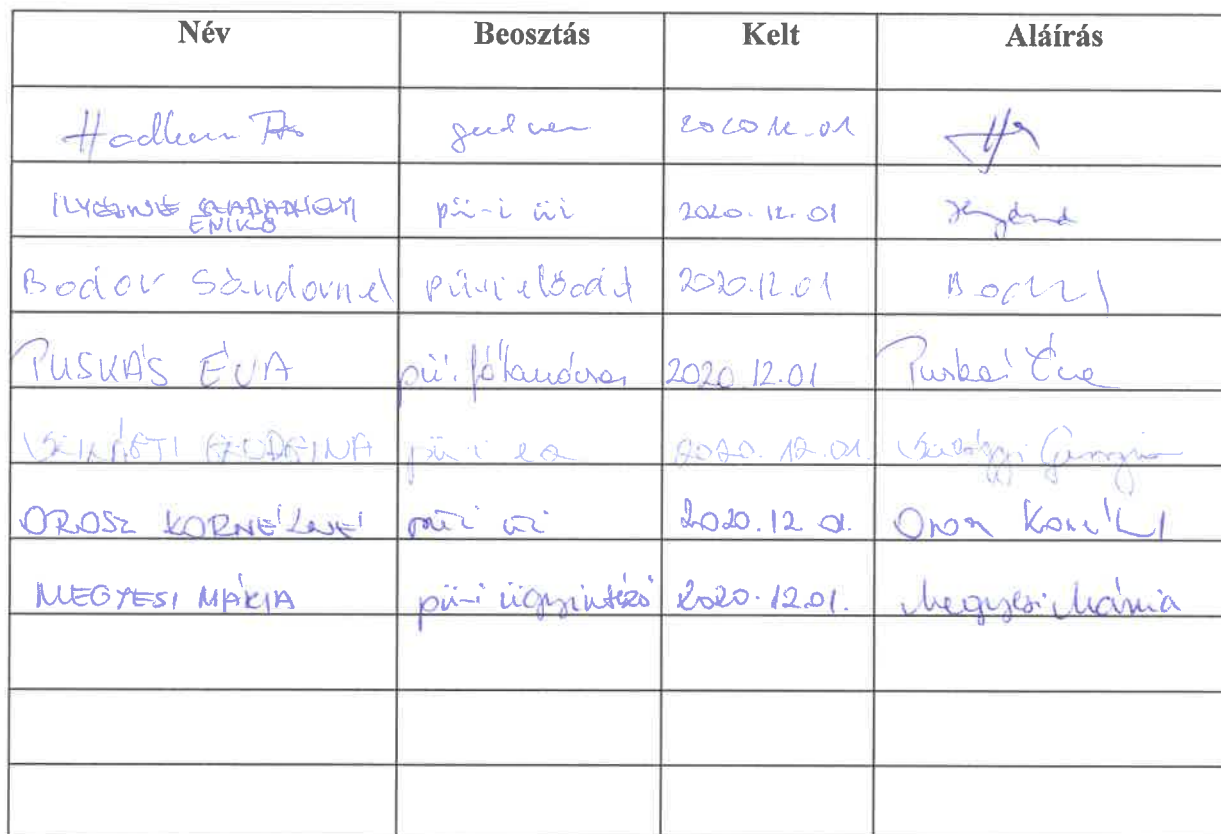 Név Beosztás Kelt Aláírás
2020 12.01
ENIKŐ pü-i üi 2020.12.01
Bodor Sándorné pü-i előadó 2020.12.01
PUSKÁS ÉVA pü. főtanácsos 2020.12.01 Puskás Éva
pü-i ea 2020.12.01.
OROSZ KORNÉLNÉ pü-i üi 2020.12.01. Orosz Kornélné
MEGYESI MÁRIA pü-i ügyintéző 2020.12.01. Megyesi Mária